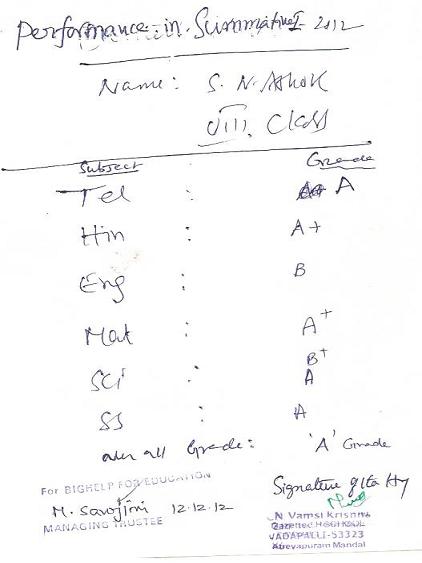 Performance in Summative I 2012
Name: S. N. Ashok
VIII. Class
Subject Grade
Tel : A
Hin : A+
Eng : B
Mat : A+
Sci : B+ A
SS : A
over all Grade: 'A' Grade
For BIGHELP FOR EDUCATION
M. Sarojini 12.12.12
MANAGING TRUSTEE
Signature of the HM
N Vamsi Krishna
Gazetted H
VADAPALLI-53323
Atreyapuram Mandal